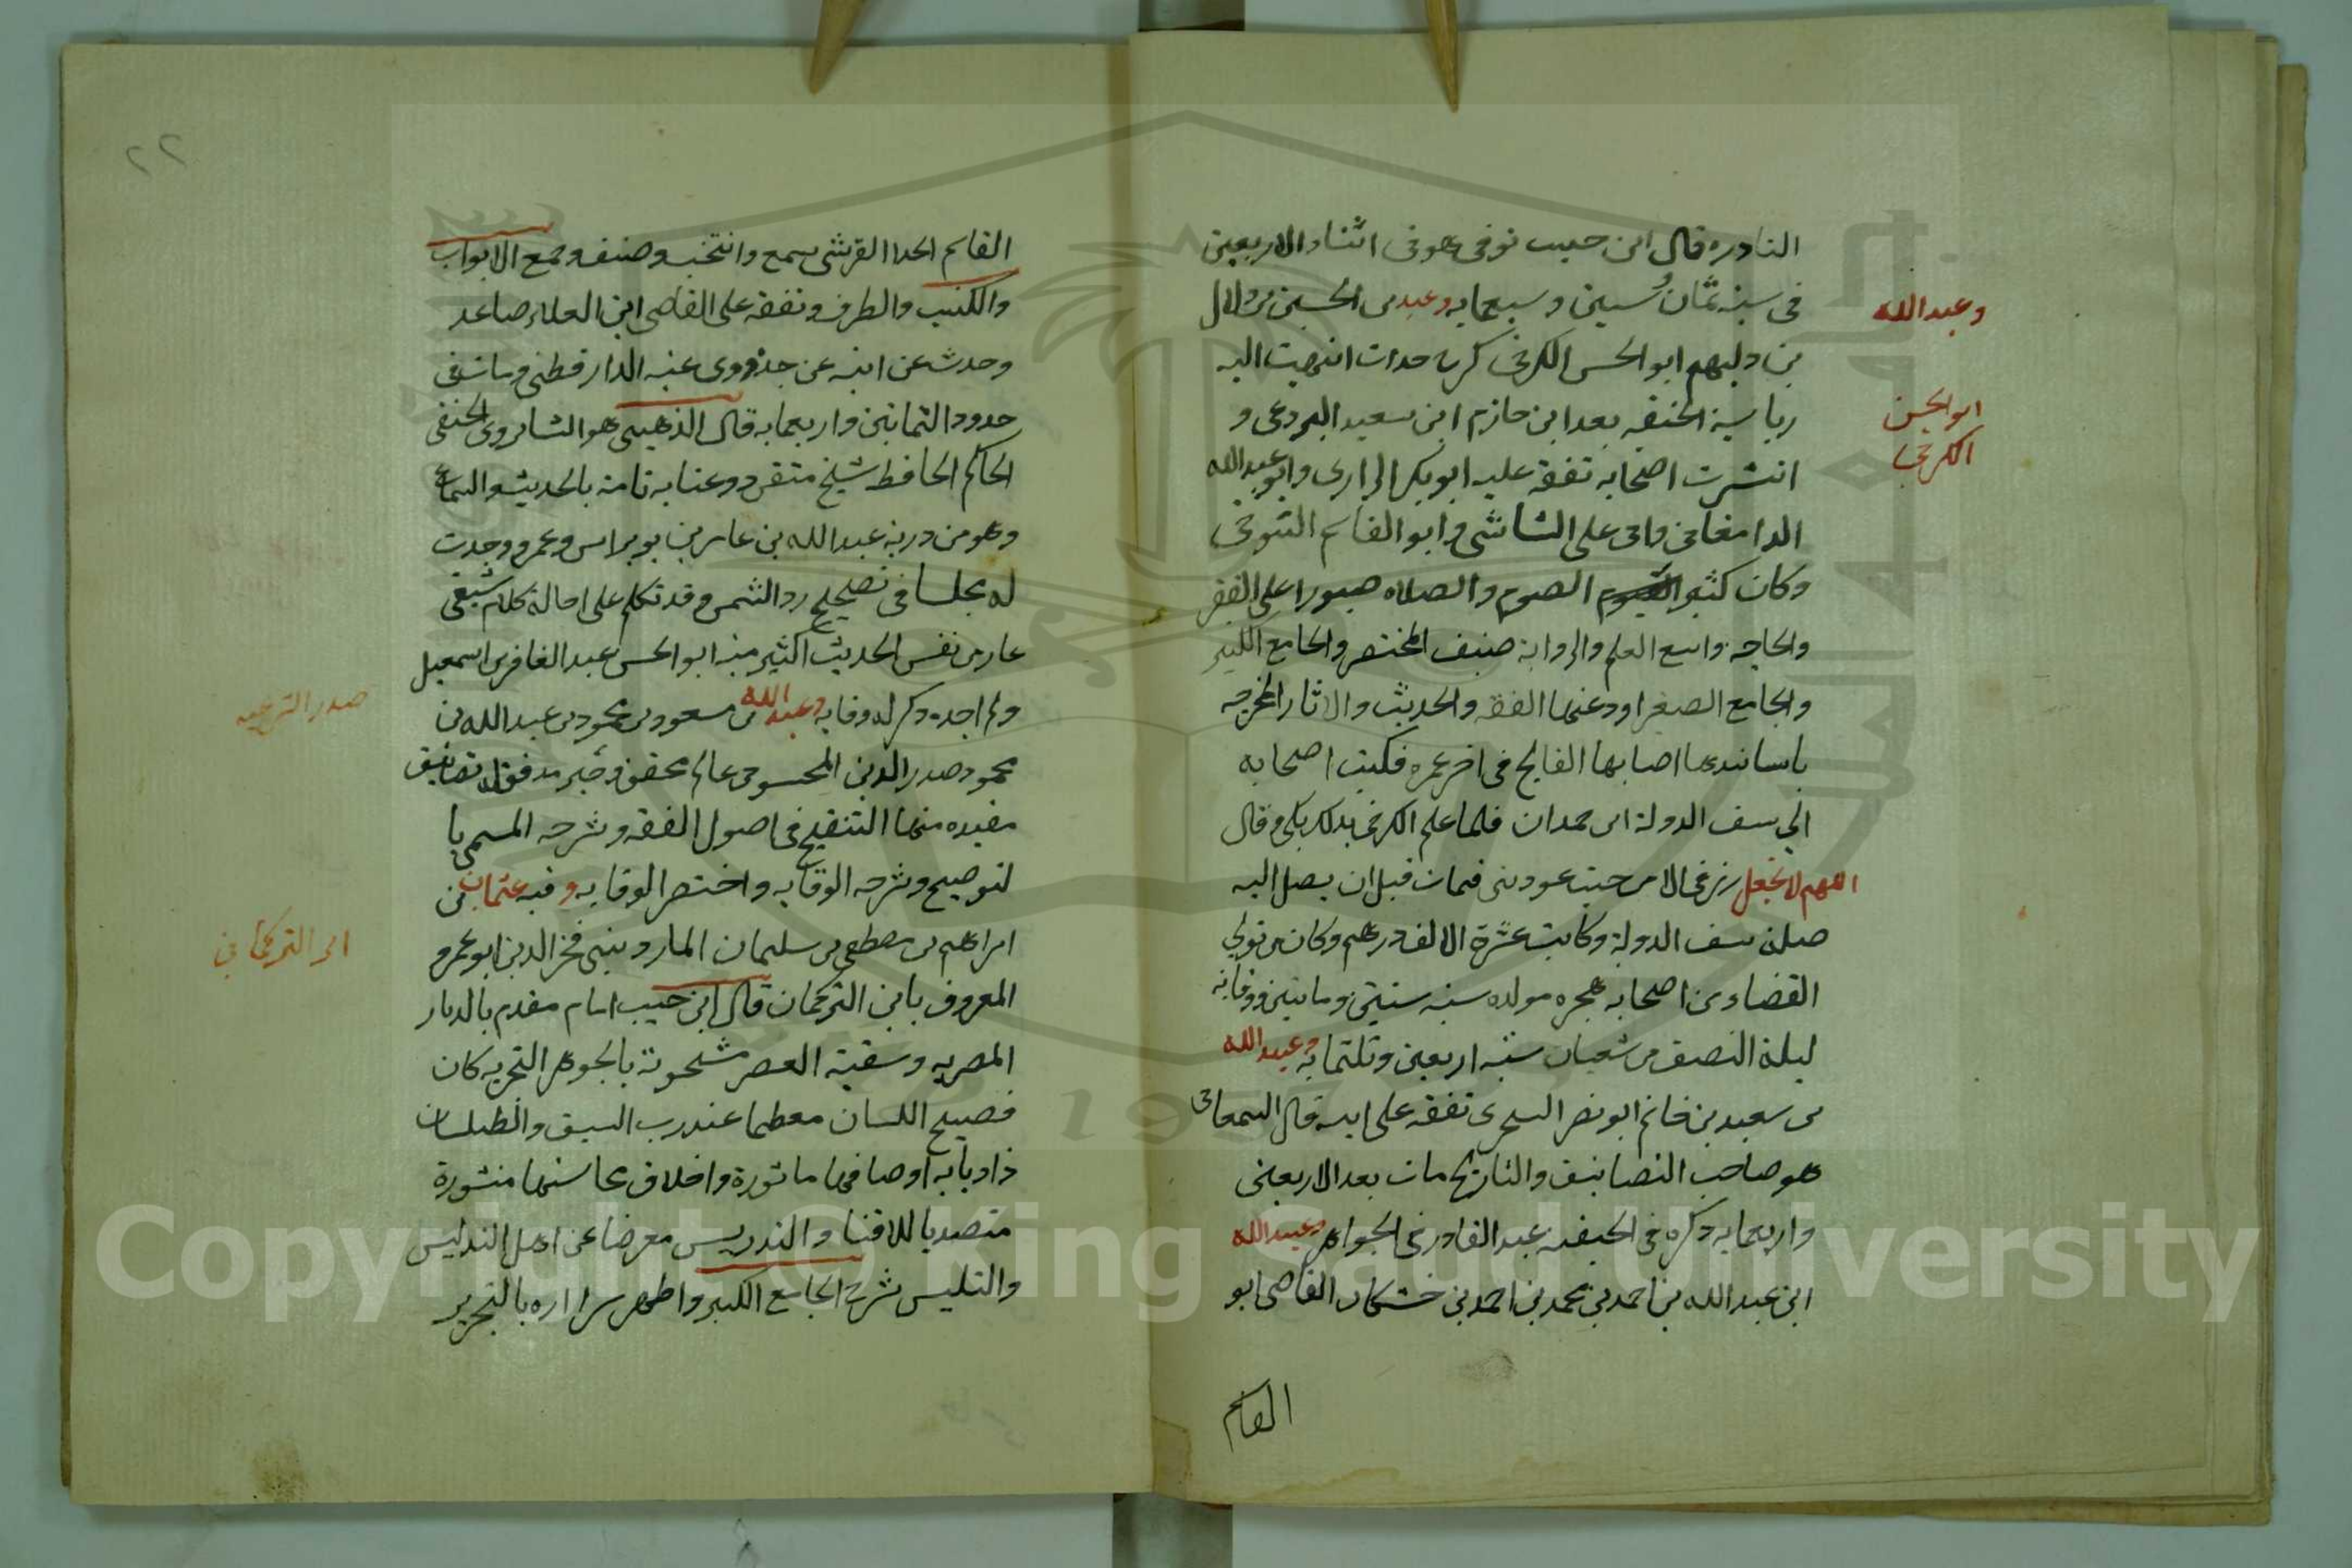 النادره قال ابن حبيب توفى وهو فى اثناء الاربعين
فى سنة ثمان وستين وسبعمايه وعبد بن الحسين بن دلال
وعبد الله
بن دلهم ابو الحسن الكرخى كرخ حدان انتهيت اليه
رياسة الحنفيه بعد ابن حازم ابن سعيد البردعى و
ابو الحسن
الكرخى
انتشرت اصحابه تفقه عليه ابو بكر الرازى وابو عبد الله
الدامغانى وابى على الشاشى وابو القاسم التنوخى
وكان كثير الصوم والصلاه صبورا على الفقر
والحاجه واسع العلم والروايه صنف المختصر والجامع الكبير
والجامع الصغير اودعنهما الفقه والحديث والاثار المخرجه
باسانيدها اصابها الفالج فى اخر عمره فكتب اصحابه
الى سيف الدولة ابن حمدان فلما علم الكرخى بذلك بكى وقال
اللهم لا تجعل رزقى الا من حيث عودتنى فمات قبل ان يصل اليه
صلة سيف الدولة وكانت عشرة الالف درهم وكان من تولى
القضاء من اصحابه هجره مولده سنه ستين ومايتين ووفاته
ليلة النصف من شعبان سنه اربعين وثلثمايه وعبيد الله
بن سعيد بن حاتم ابو نصر السجزى تفقه على ابيه قال السمعانى
هو صاحب التصانيف والتاريخ مات بعد الاربعين
واربعمايه ذكره فى الحنفيه عبد القادر فى الجواهر وعبيد الله
ابن عبد الله بن احمد بن محمد بن احمد بن حسكان القاضى ابو
القاسم
٢٢
القاسم الحدا القرشى سمع وانتخب وصنف وجمع الابواب
والكتب والطرف وتفقه على القاضى ابى العلاء صاعد
وحدث عن ابيه عن جده وروى عنه الدارقطنى ومات فى
حدود الثمانين واربعمايه قال الذهبى هو النسابورى الحنفى
الحاكم الحافظ شيخ متقن ذو عنايه تامة بالحديث والسماع
وهو من ذرية عبد الله بن عامر بن وعمر ووجدت
له مجلسا فى تصحيح رد الشمس وقد تكلم على احاله كلام شيعى
عارف نفس الحديث اكثر منه ابو الحسن عبد الغافر بن اسمعيل
ولم اجده ذكر له وفايه وعبد الله بن مسعود بن محمود بن عبد الله بن
صدر الشريعه
محمود صدر الدين المحبوبى عالم محقق وحبر مدقق له تصانيف
مفيده منها التنقيح فى اصول الفقه وشرحه المسمى با
لتوضيح وشرحه الوقايه واختصر الوقايه وفيه عثمان بن
ابراهيم بن مصطفى بن سليمان الماردينى فخر الدين ابو عمرو
ابن التركمانى
المعروف بابن التركمان قال ابن حبيب امام مقدم بالديار
المصريه وسفينة العصر مشحونة بالجواهر التحريه كان
فصيح اللسان معظما عند رب السيف والطيلسان
ذا دبابه اوصافها ماثورة واخلاق محاسنها منثورة
متصديا للافتا والتدريس معرضا عن اهل التدليس
والتلبيس شرح الجامع الكبير واظهر اسراره بالتحرير
Copyright © King Saud University
1957